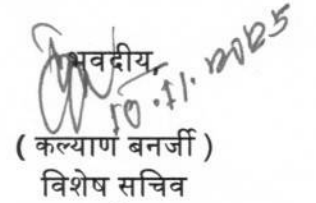 भवदीय,
10.11.2025
( कल्याण बनर्जी )
विशेष सचिव